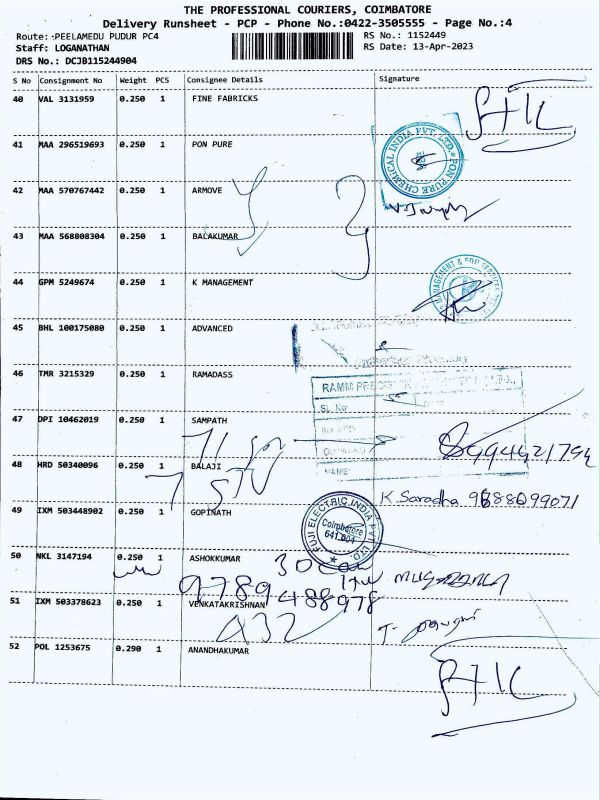 THE PROFESSIONAL COURIERS, COIMBATORE
Delivery Runsheet - PCP - Phone No.:0422-3505555 - Page No.:4
Route: PEELAMEDU PUDUR PC4
RS No.: 1152449
Staff: LOGANATHAN
RS Date: 13-Apr-2023
DRS No.: DCJB115244904
S No Consignment No Weight PCS Consignee Details Signature
40 VAL 3131959 0.250 1 FINE FABRICS
41 MAA 296519693 0.250 1 PON PURE
PON PURE CHEMICAL INDIA PVT. LTD.
42 MAA 570767442 0.250 1 ARMOVE
43 MAA 568808304 0.250 1 BALAKUMAR
44 GPM 5249674 0.250 1 K MANAGEMENT
MANAGEMENT &
45 BHL 100175080 0.250 1 ADVANCED
46 TMR 3215329 0.250 1 RAMADASS
RAMM
SL. No
47 DPI 10462019 0.250 1 SAMPATH
NAME:
48 HRD 50340096 0.250 1 BALAJI
K. Saradha 9688099071
49 IXM 503448902 0.250 1 GOPINATH
FUJI ELECTRIC INDIA PVT. LTD.
Coimbatore
641 004
50 NKL 3147194 0.250 1 ASHOKKUMAR
9789488978
51 IXM 503378623 0.250 1 VENKATAKRISHNAN
932
52 POL 1253675 0.290 1 ANANDHAKUMAR